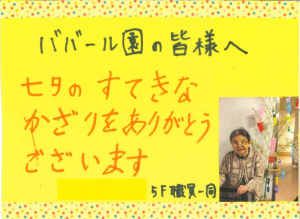 ババール園の皆様へ
七夕の すてきな
かざりをありがとう
ございます
5F職員一同